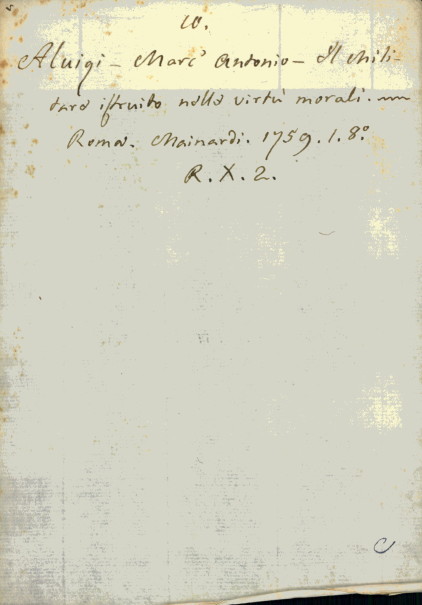 10.
Aluigi - Marc' Antonio - Il Mili-
tare istruito nelle virtù morali.
Roma. Mainardi. 1759. 1. 8.º
R. X. 2.